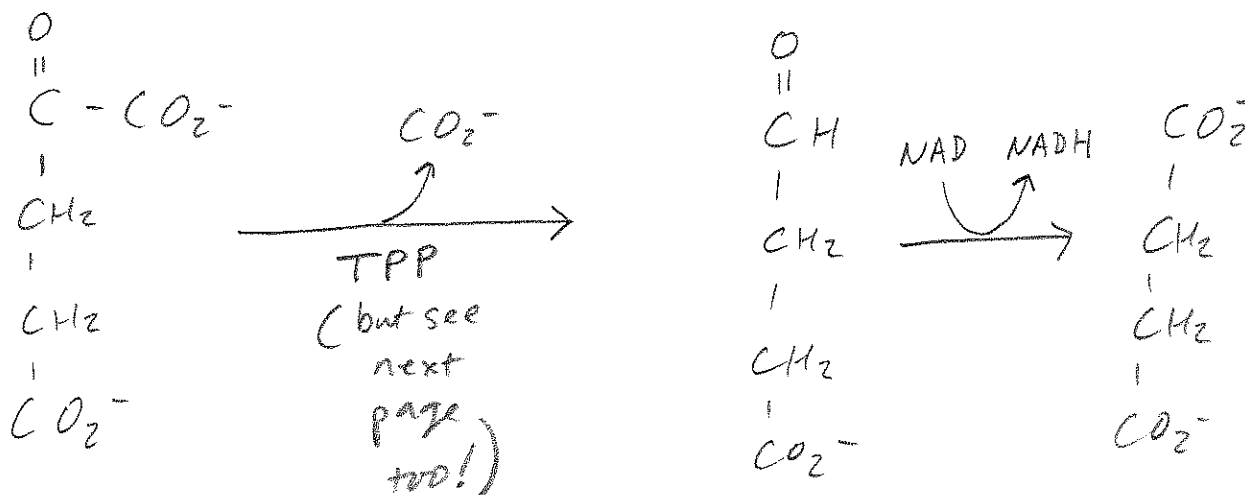 O
||
C - CO₂⁻
|
CH₂
|
CH₂
|
CO₂⁻
CO₂⁻
TPP
(but see
next
page
too!)
O
||
CH
|
CH₂
|
CH₂
|
CO₂⁻
NAD NADH
CO₂⁻
|
CH₂
|
CH₂
|
CO₂⁻